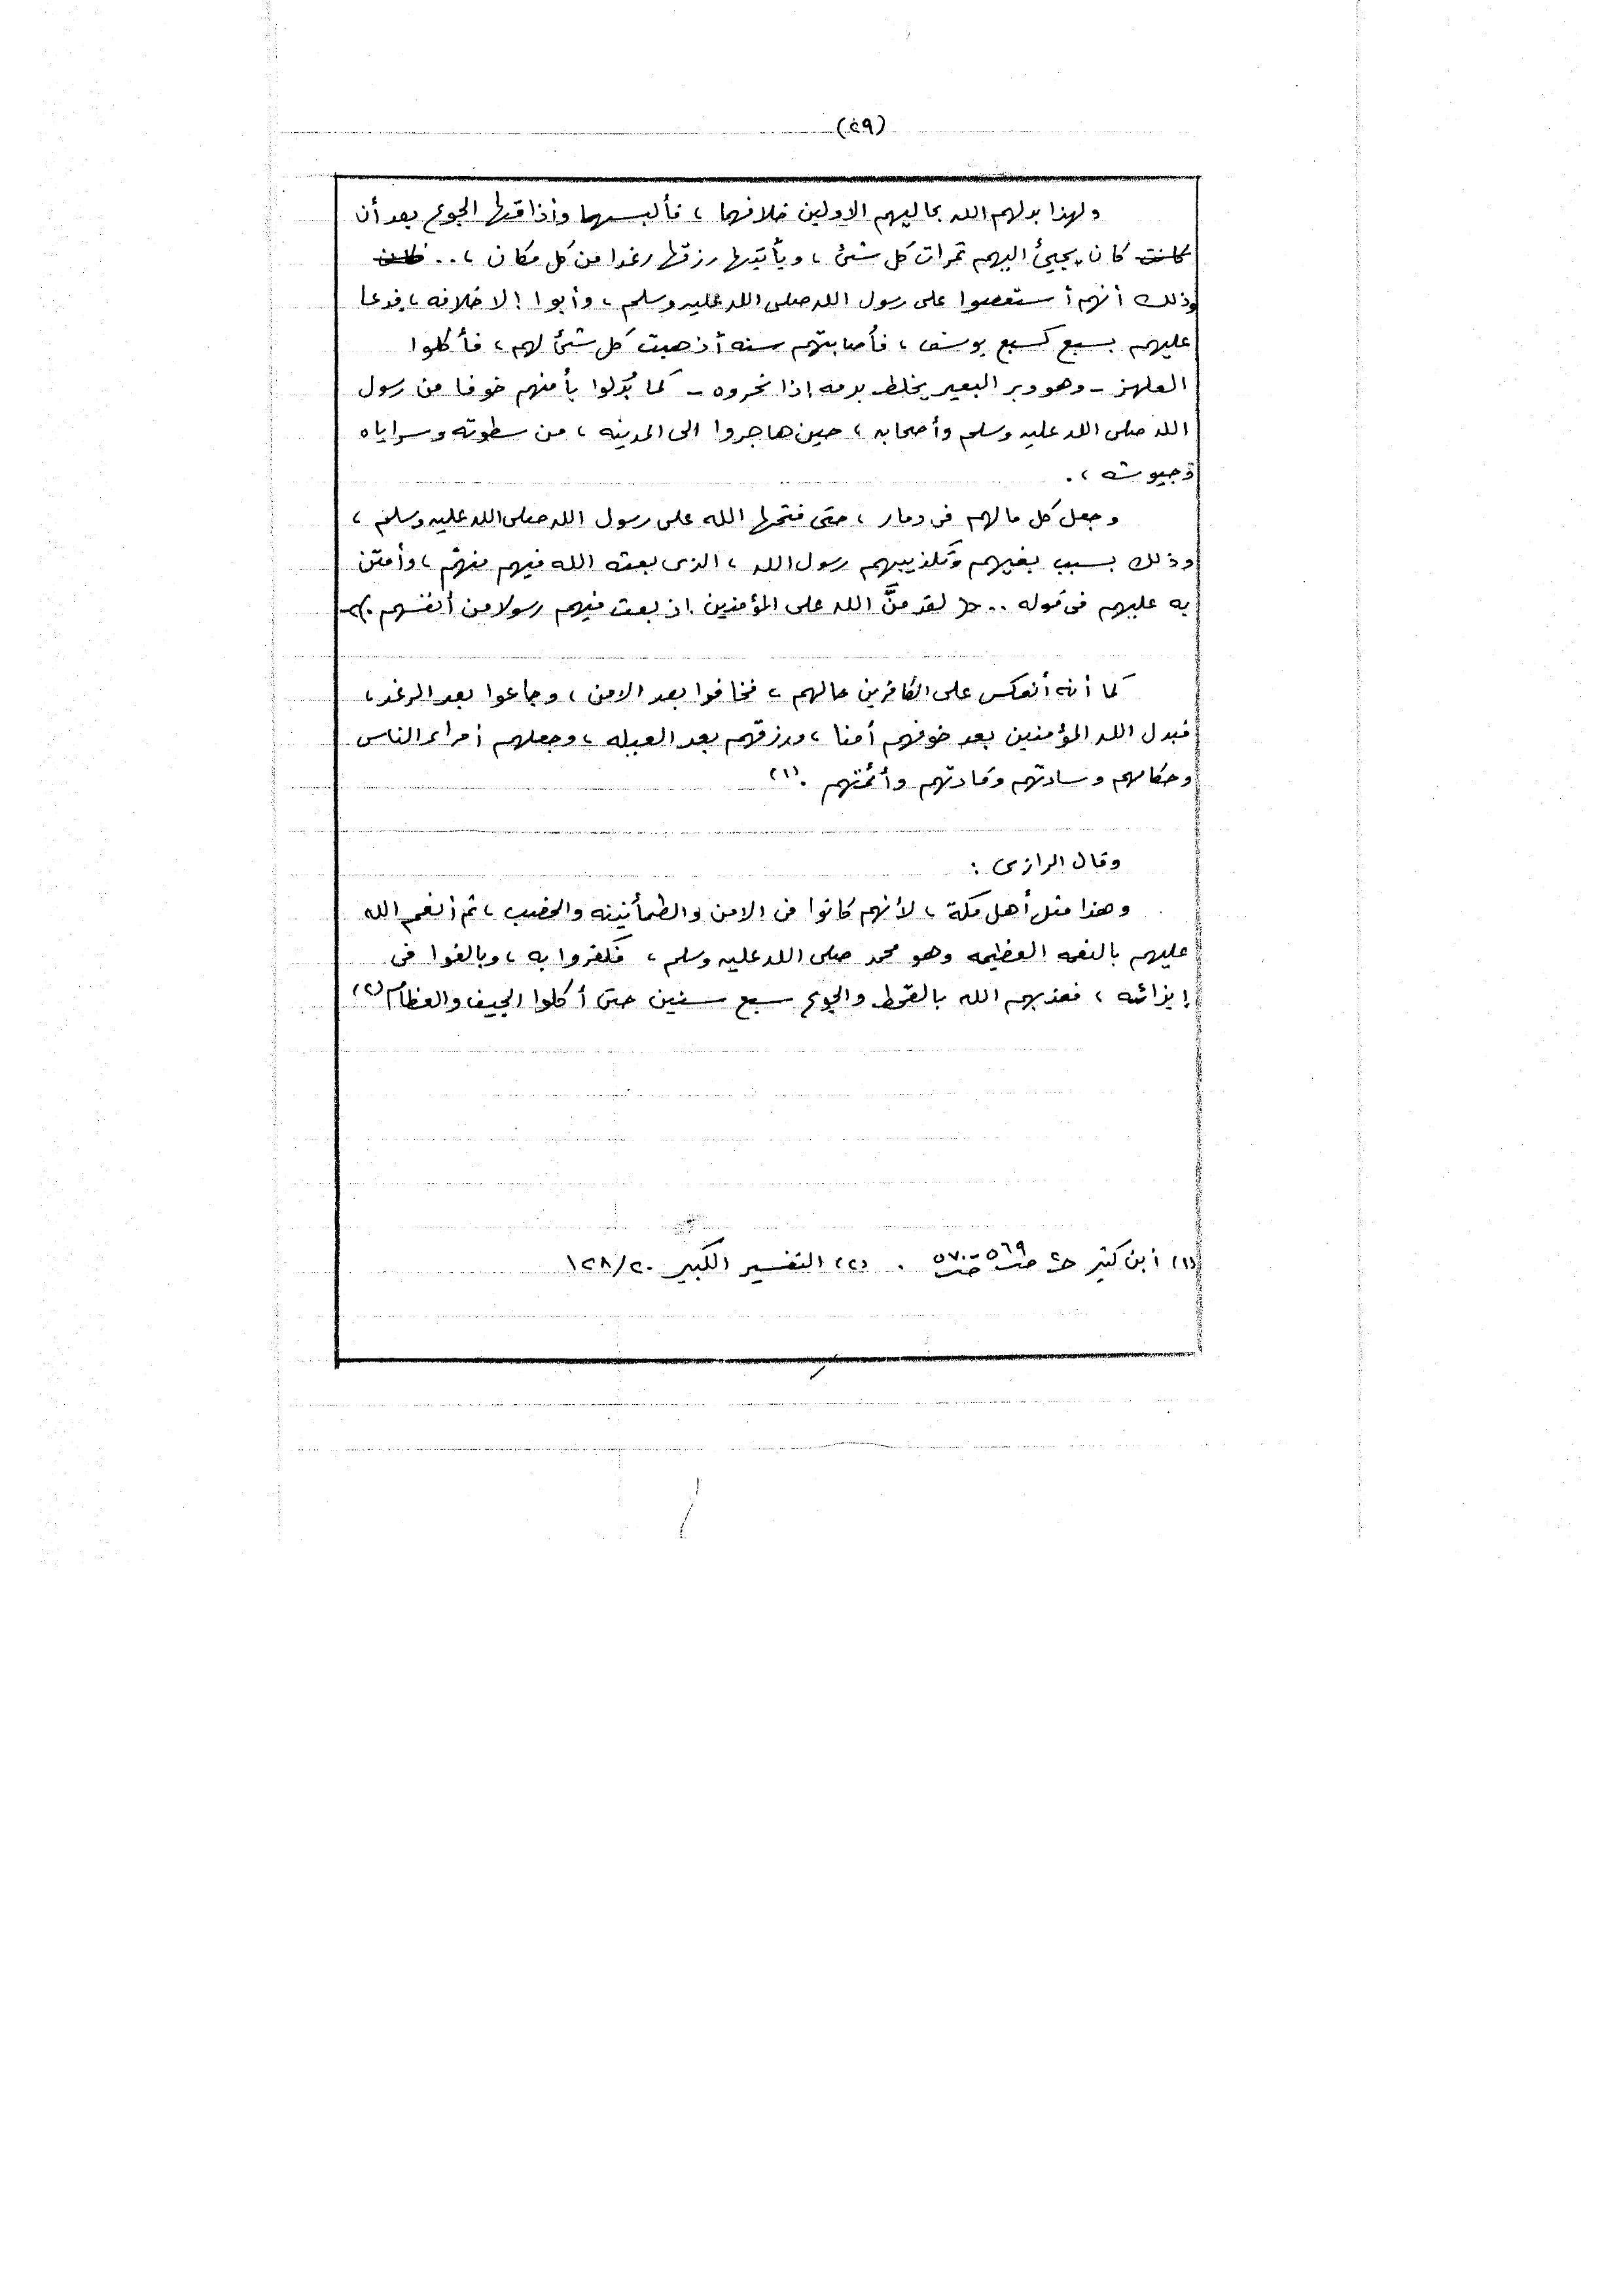 (٤٩)
ولهذا بدلهم الله بحاليهم الاولين خلافهما ، فألبسهما وأذاقها الجوع بعد أن
كانت كان يجيئ اليهم ثمرات كل شئ ، ويأتيها رزقها رغدا من كل مكان ، .. فكان
وذلك أنهم أستعصوا على رسول الله صلى الله عليه وسلم ، وأبوا إلا خلافه ، فدعا
عليهم بسبع كسبع يوسف ، فأصابتهم سنه أذهبت كل شئ لهم ، فأكلوا
العلهز - وهو وبر البعير يخلط بدمه إذا نحروه - كما بُدلوا بأمنهم خوفا من رسول
الله صلى الله عليه وسلم وأصحابه ، حين هاجروا الى المدينه ، من سطوته وسراياه
وجيوشه ، .
وجعل كل مالهم فى دمار ، حتى فتحها الله على رسول الله صلى الله عليه وسلم ،
وذلك بسبب بغيهم وتكذيبهم رسول الله ، الذى بعثه الله فيهم منهم ، وأمتن
به عليهم فى قوله .. ﴿ لقد منَّ الله على المؤمنين إذ بعث فيهم رسولا من أنفسهم . ﴾
كما أنه أنعكس على الكافرين حالهم ، فخافوا بعد الامن ، وجاعوا بعد الرغد ،
فبدل الله المؤمنين بعد خوفهم أمنا ، ورزقهم بعد العيله ، وجعلهم أمراء الناس
وحكامهم وسادتهم وقادتهم وأئمتهم . (١)
وقال الرازى :
وهذا مثل أهل مكة ، لأنهم كانوا فى الامن والطمأنينه والخصب ، ثم أنعم الله
عليهم بالنعمه العظيمه وهو محمد صلى الله عليه وسلم ، فكفروا به ، وبالغوا فى
إيذائه ، فعذبهم الله بالقحط والجوع سبع سنين حتى أكلوا الجيف والعظام (٢)
(١) أبن كثير ح٤ ص ٥٦٩ - ص ٥٧٠ . (٢) التفسير الكبير ٢٠/١٢٨